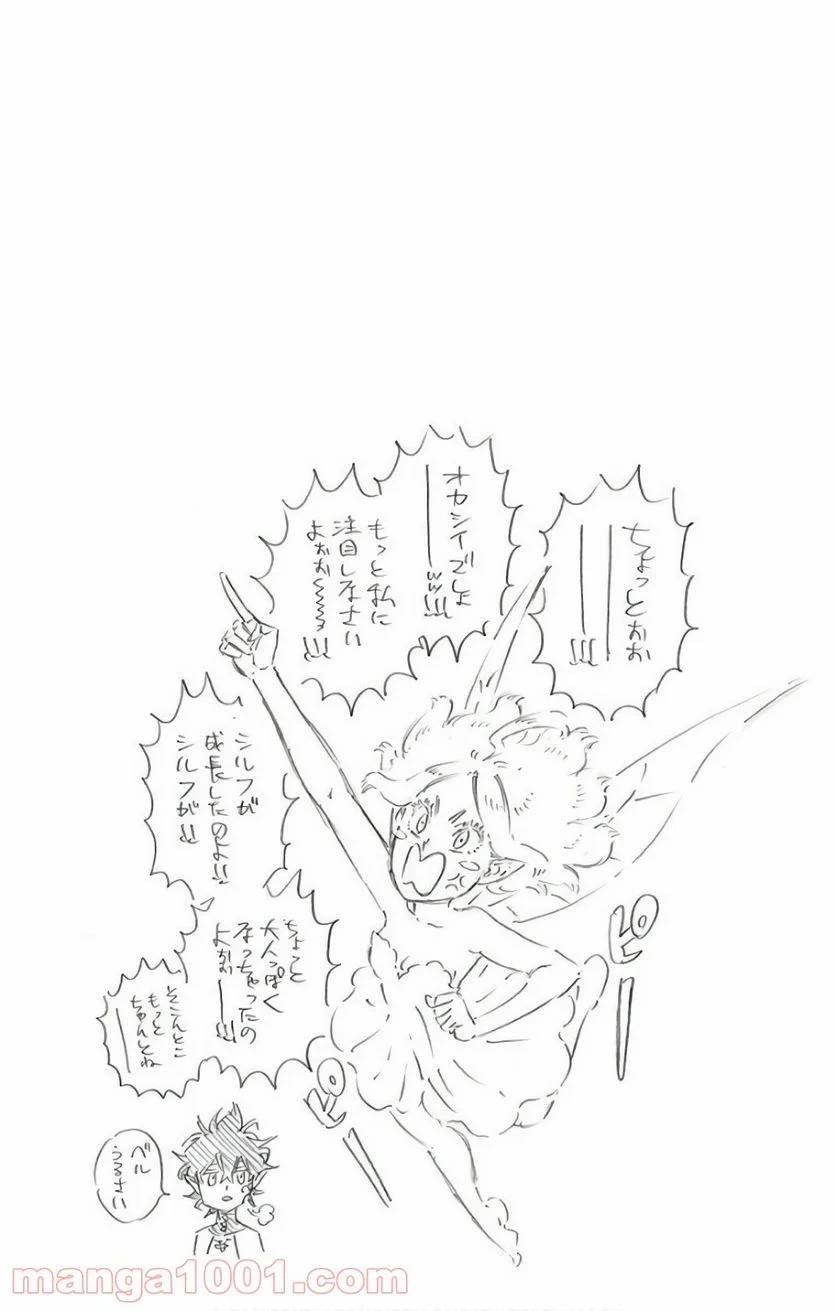 ちょっとおお
━━━!!!
オカシイでしょ
━━ッッ!!!
もっと私に
注目しなさい
よぉぉ〜〜〜!!!
シルフが
成長したのよ!!
シルフが!!
ちょっと
大人っぽく
なっちゃったの
よぉぉ━━!!!
そこんとこ
もっと
ちゃんとね
━━
ベル
うるさい
ピー
ピー
manga1001.com